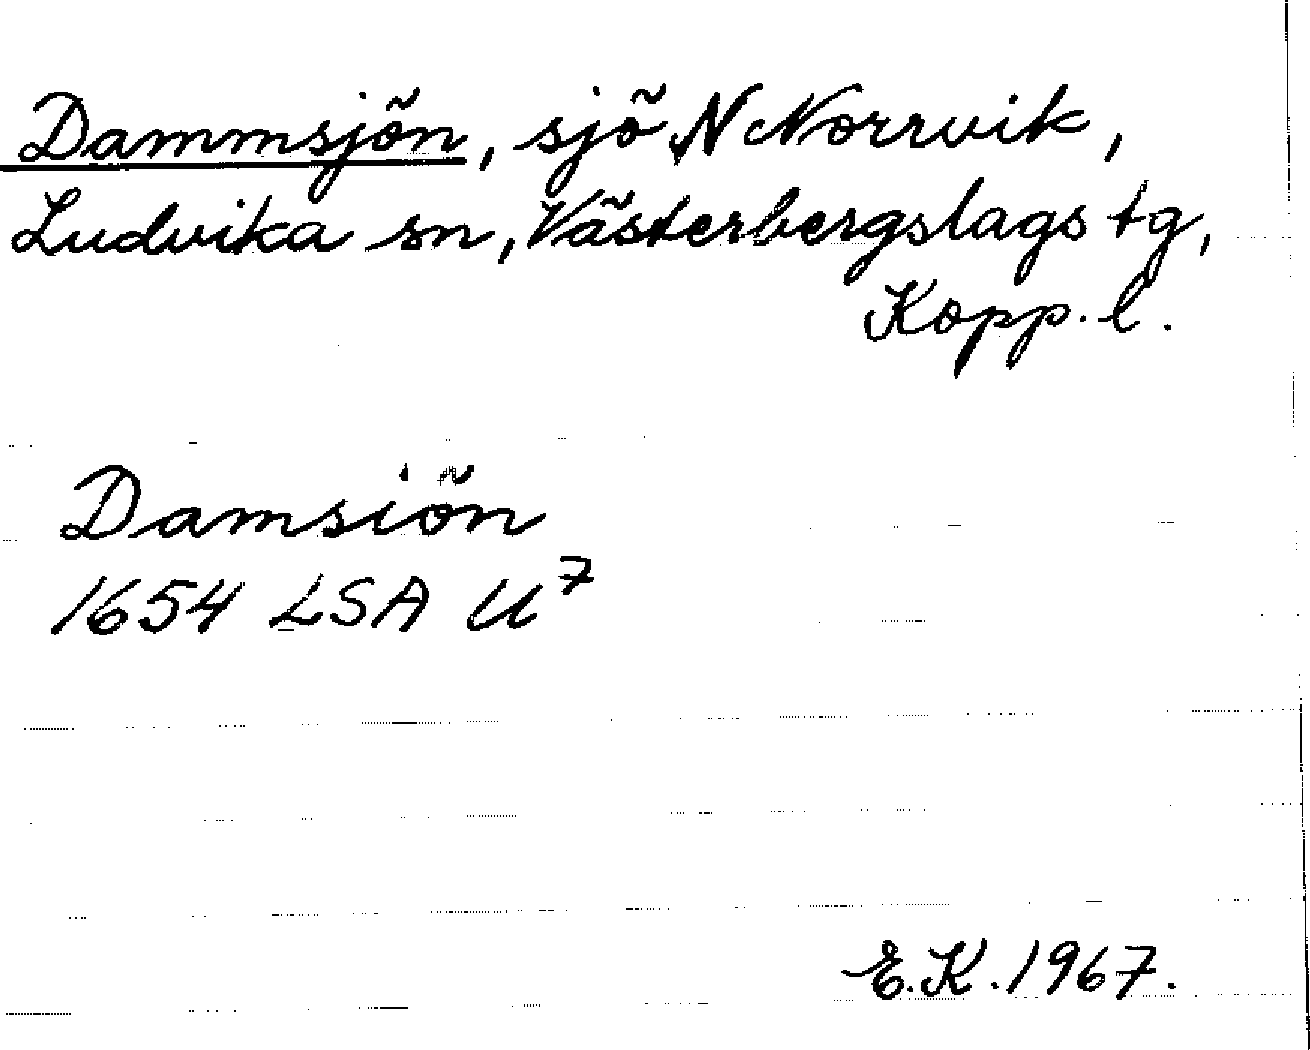 Dammsjön, sjö N Norrvik,
Ludvika sn, Västerbergslags tg,
Kopp. l.
Damsiön
1654 LSA U⁷
E.K. 1967.